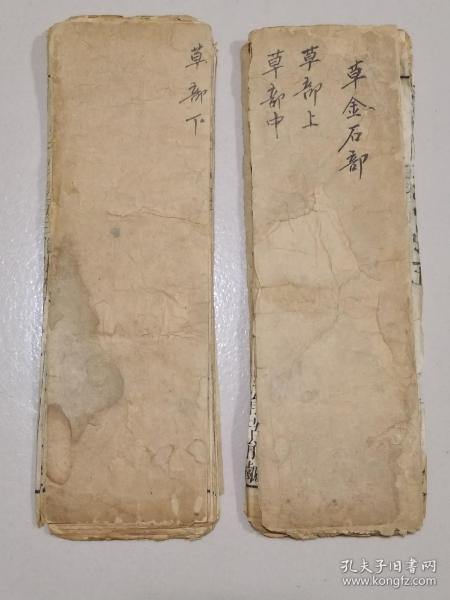 草部下
草金石部
草部上
草部中
孔夫子旧书网
www.kongfz.com